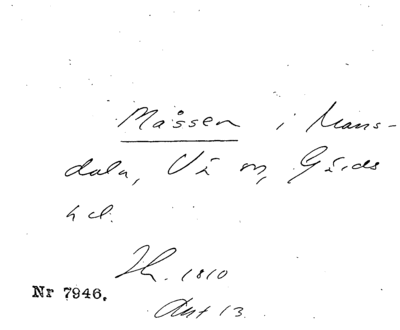 Måssen i Mans-
dala, Vä sn, Gärds
hd.
Th. 1810
Nr 7946.
Akt 13